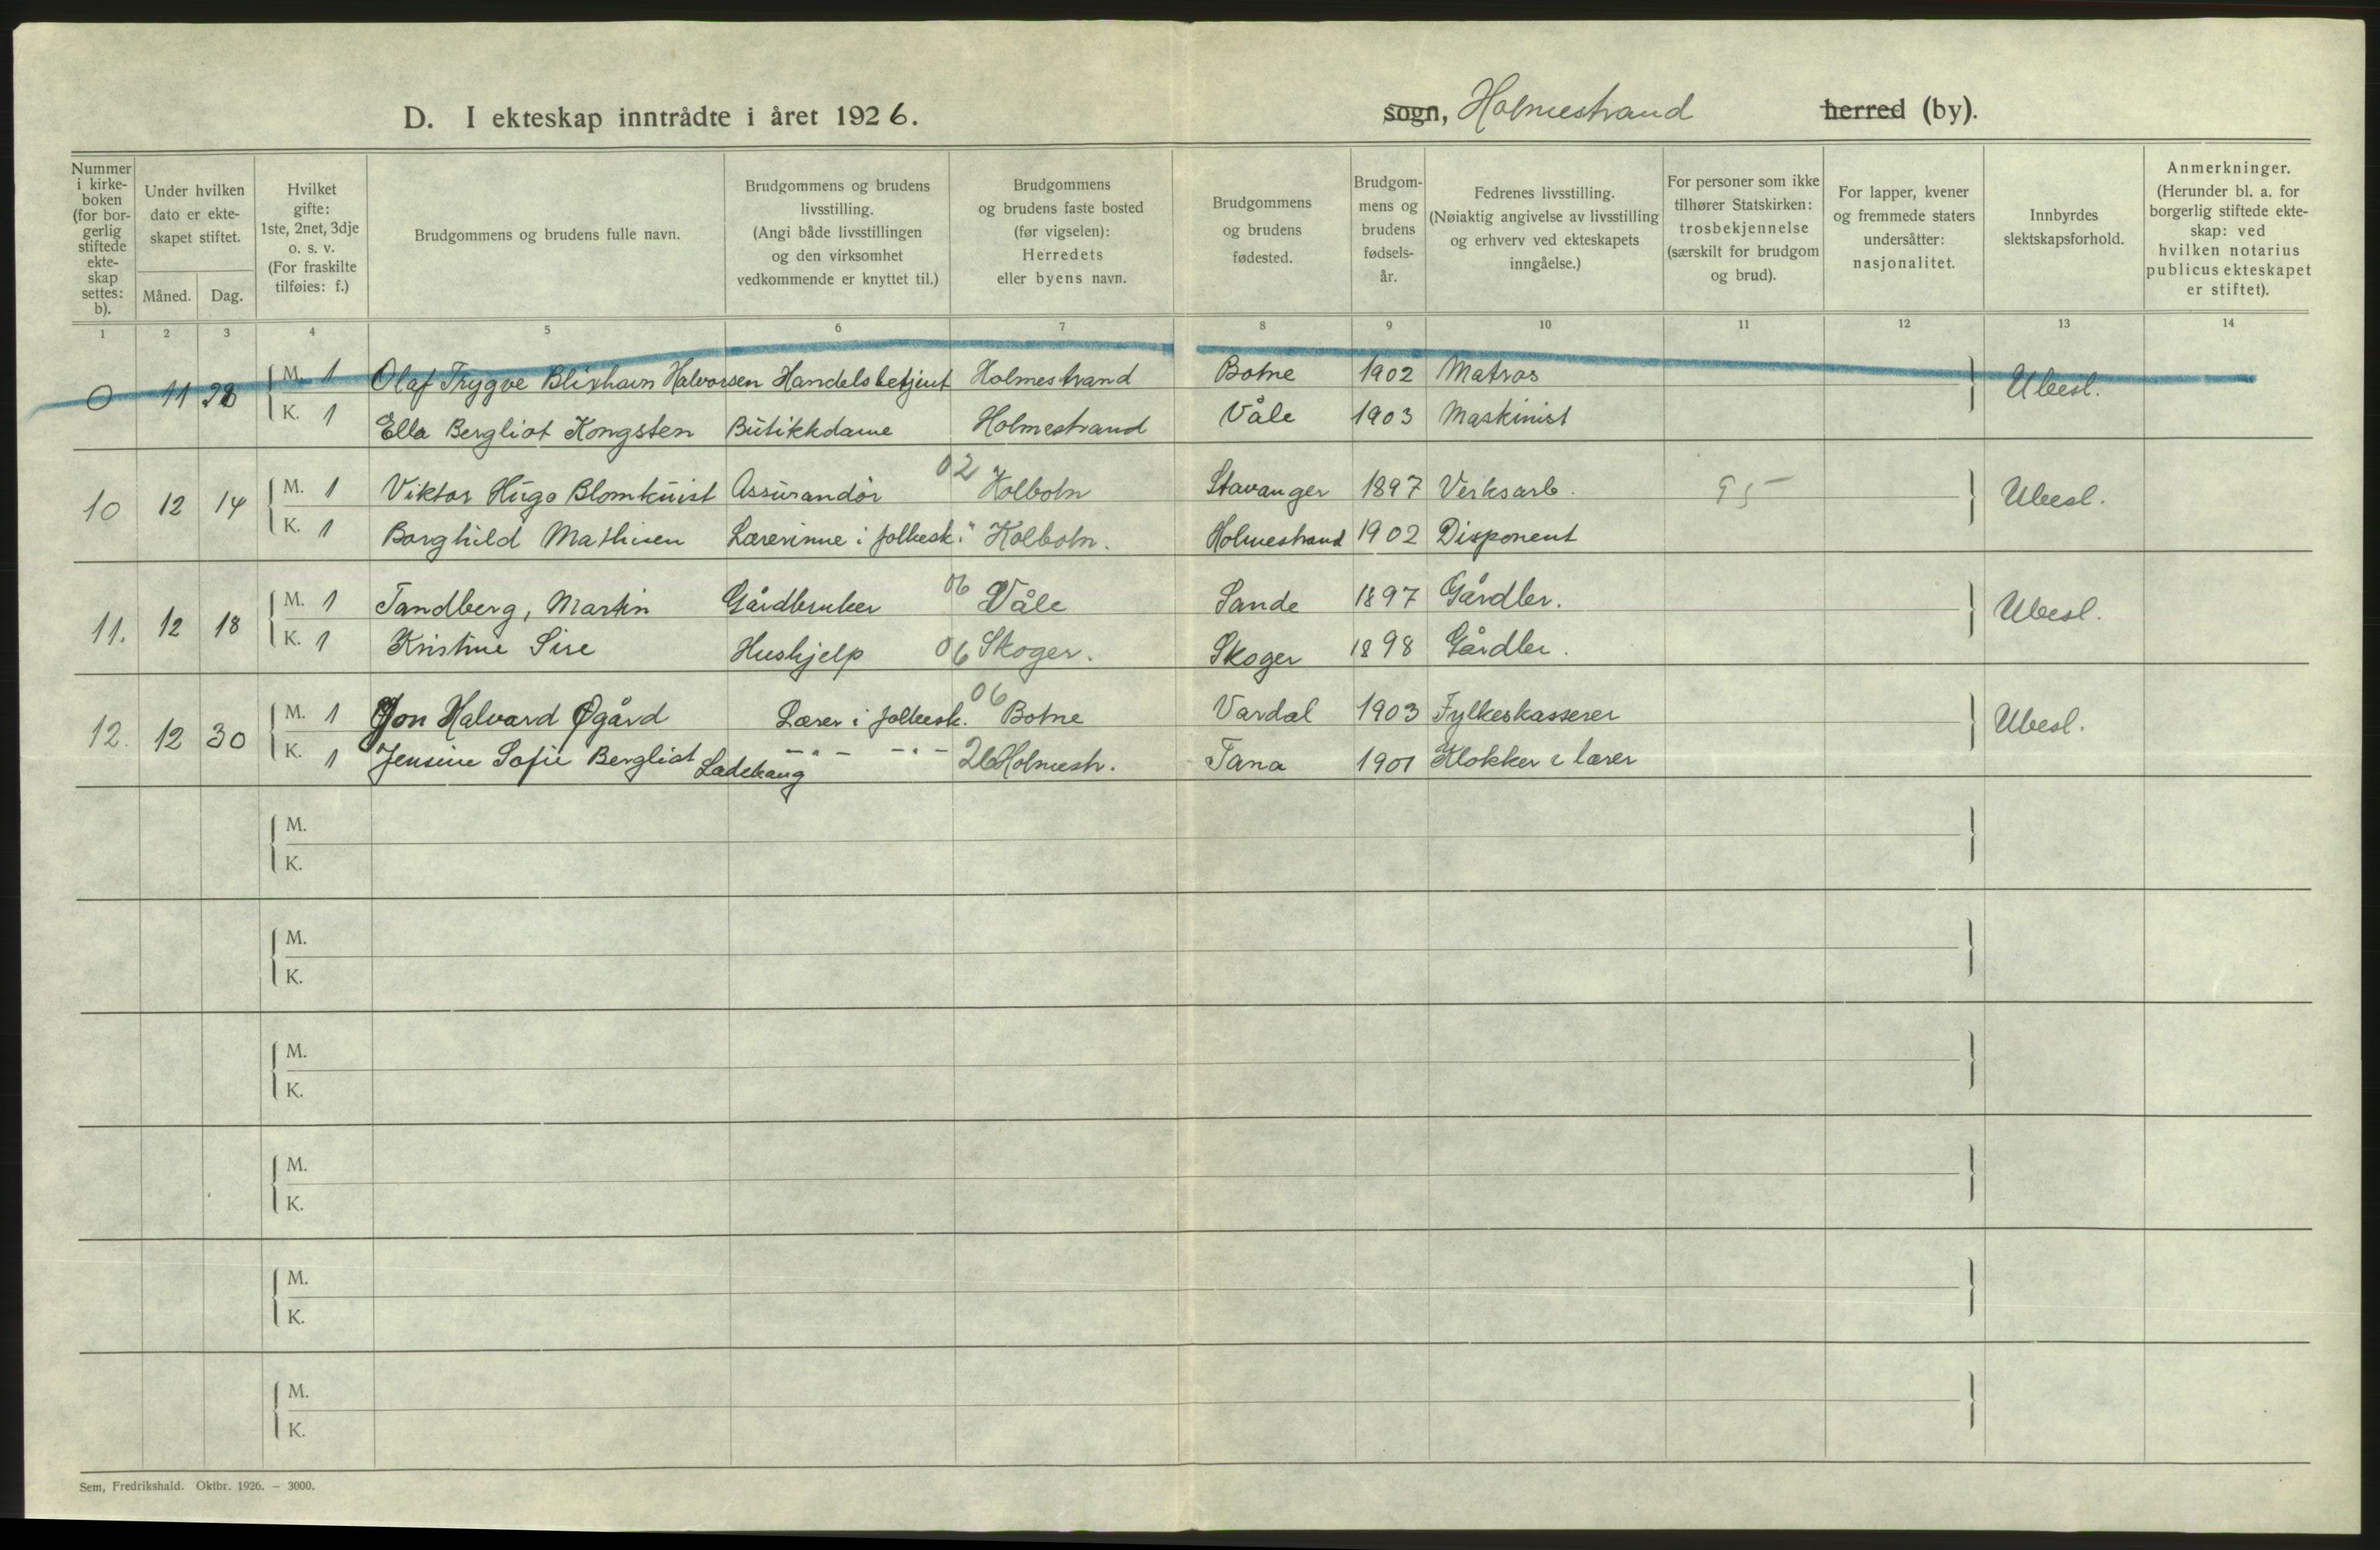 D. I ekteskap inntrådte i året 1926.
sogn, Holmestrand herred (by).
Nummer i kirkeboken (for borgerlig stiftede ekteskap settes: b).
Under hvilken dato er ekteskapet stiftet.
Måned. Dag.
Hvilket gifte: 1ste, 2net, 3dje o. s. v. (For fraskilte tilføies: f.)
Brudgommens og brudens fulle navn.
Brudgommens og brudens livsstilling. (Angi både livsstillingen og den virksomhet vedkommende er knyttet til.)
Brudgommens og brudens faste bosted (før vigselen): Herredets eller byens navn.
Brudgommens og brudens fødested.
Brudgommens og brudens fødselsår.
Fedrenes livsstilling. (Nøiaktig angivelse av livsstilling og erhverv ved ekteskapets inngåelse.)
For personer som ikke tilhører Statskirken: trosbekjennelse (særskilt for brudgom og brud).
For lapper, kvener og fremmede staters undersåtter: nasjonalitet.
Innbyrdes slektskapsforhold.
Anmerkninger. (Herunder bl. a. for borgerlig stiftede ekteskap: ved hvilken notarius publicus ekteskapet er stiftet).
1 2 3 4 5 6 7 8 9 10 11 12 13 14
0 11 28 M. 1 Olaf Trygve Blixhavn Halvorsen Handelsbetjent Holmestrand Botne 1902 Matros Ubesl.
K. 1 Ella Bergliot Kongsten Butikkdame Holmestrand Våle 1903 Maskinist
10 12 14 M. 1 Viktor Hugo Blomkuist Assurandör 02 Kolbotn Stavanger 1897 Verksarb. 95 Ubesl.
K. 1 Borghild Mathisen Lærerinne i folkesk. " Kolbotn. Holmestrand 1902 Disponent
11. 12 18 M. 1 Tandberg, Martin Gårdbruker 06 Våle Sande 1897 Gårdbr. Ubesl.
K. 1 Kristine Sire Hushjelp 06 Skoger. Skoger 1898 Gårdbr.
12. 12 30 M. 1 Jon Halvard Øgård Lærer i folkesk. 06 Botne Vardal 1903 Fylkeskasserer Ubesl.
K. 1 Jensine Sofie Bergliot Ladehaug - " - - " - 26 Holmestr. Tana 1901 Klokker & lærer
M.
K.
M.
K.
M.
K.
M.
K.
M.
K.
M.
K.
Sem, Fredrikshald. Oktbr. 1926. – 3000.